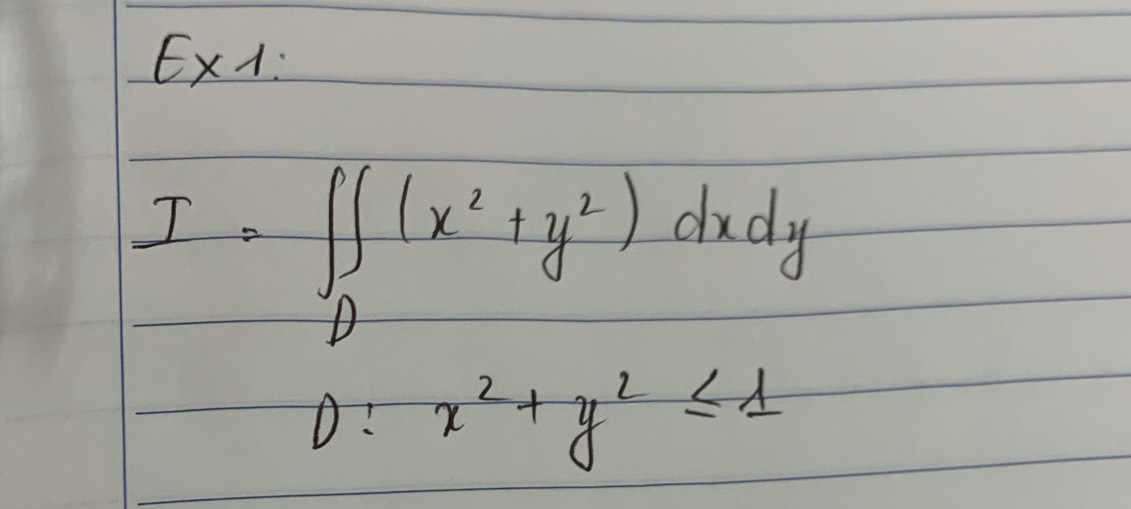 Ex 1:
I = ∬ (x² + y²) dxdy
D
D: x² + y² ≤ 1